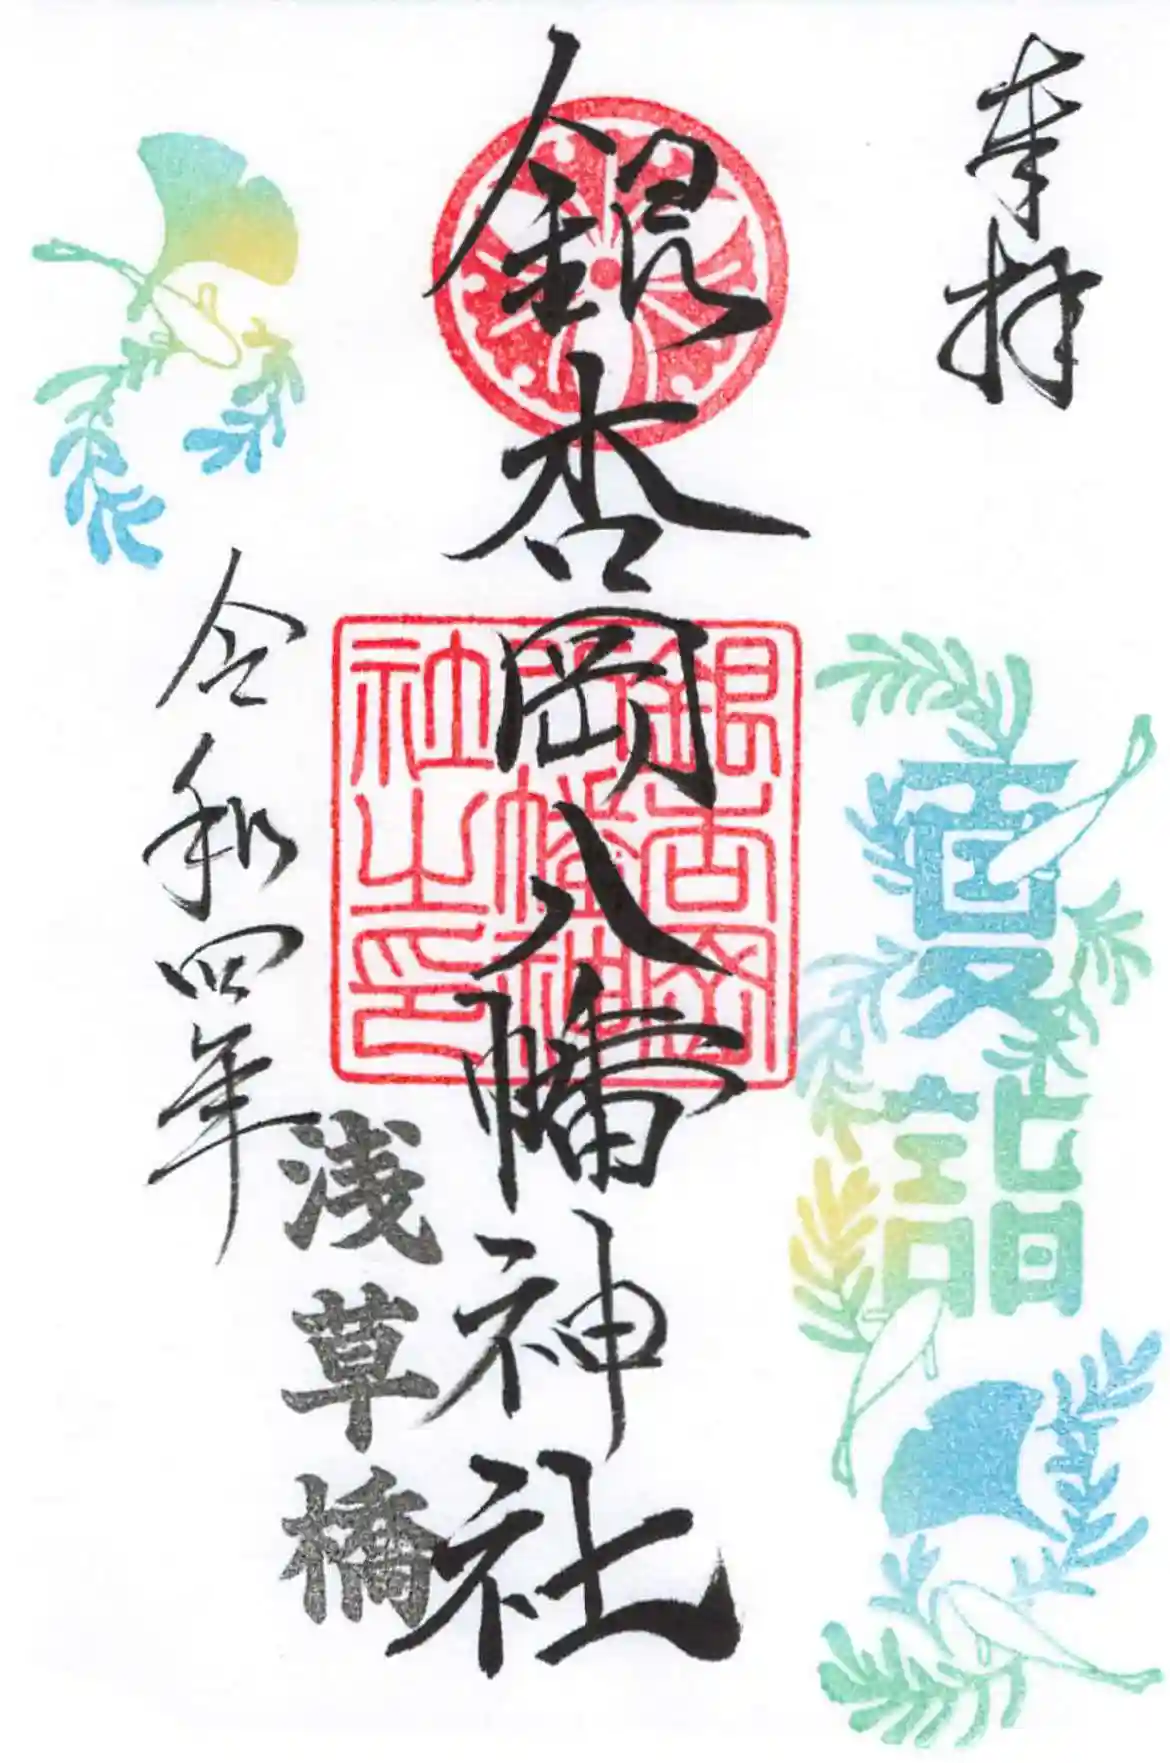 奉拝
夏詣
銀杏岡八幡神社
銀杏岡
八幡神
社之印
浅草橋
令和四年